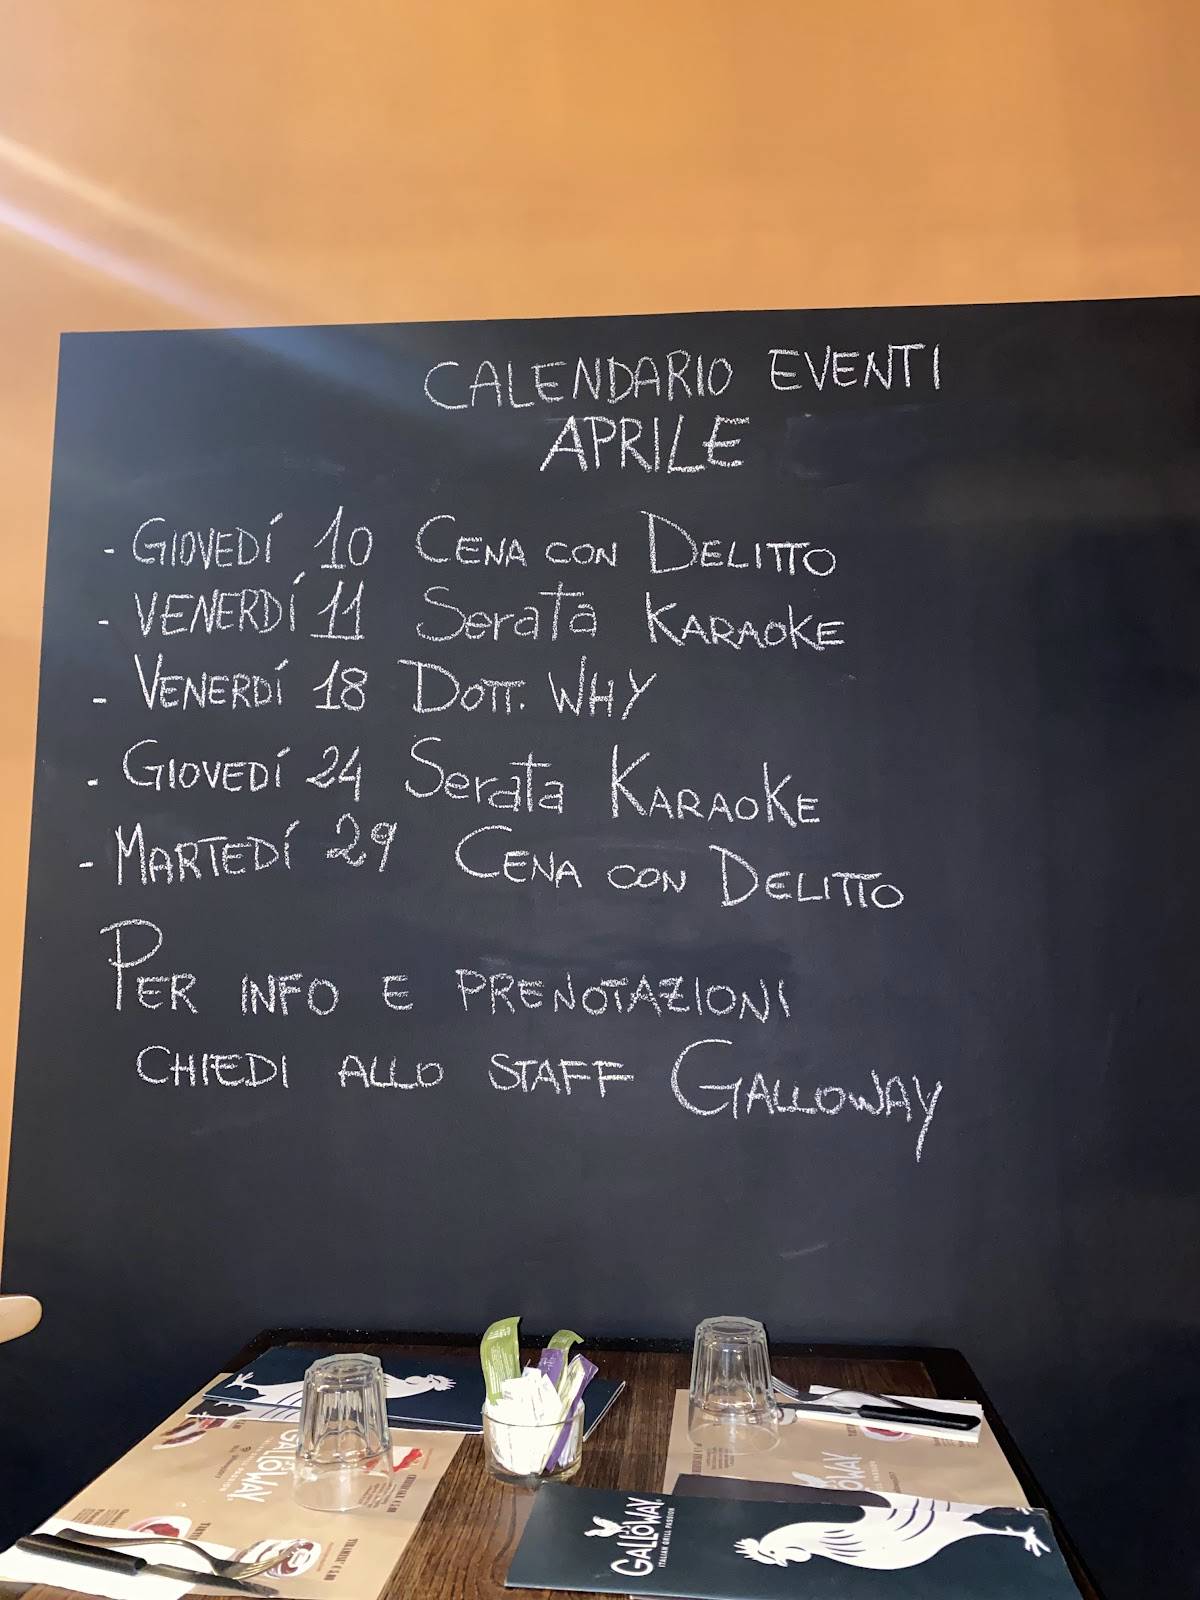 CALENDARIO EVENTI
APRILE
- GIOVEDÍ 10 CENA CON DELITTO
- VENERDÍ 11 Serata KARAOKE
- VENERDÍ 18 DOTT. WHY
- GIOVEDÍ 24 Serata KARAOKE
- MARTEDÍ 29 CENA CON DELITTO
PER INFO E PRENOTAZIONI
CHIEDI ALLO STAFF GALLOWAY
GALLOWAY
GALLOWAY
GALLOWAY
ITALIAN GRILL PASSION